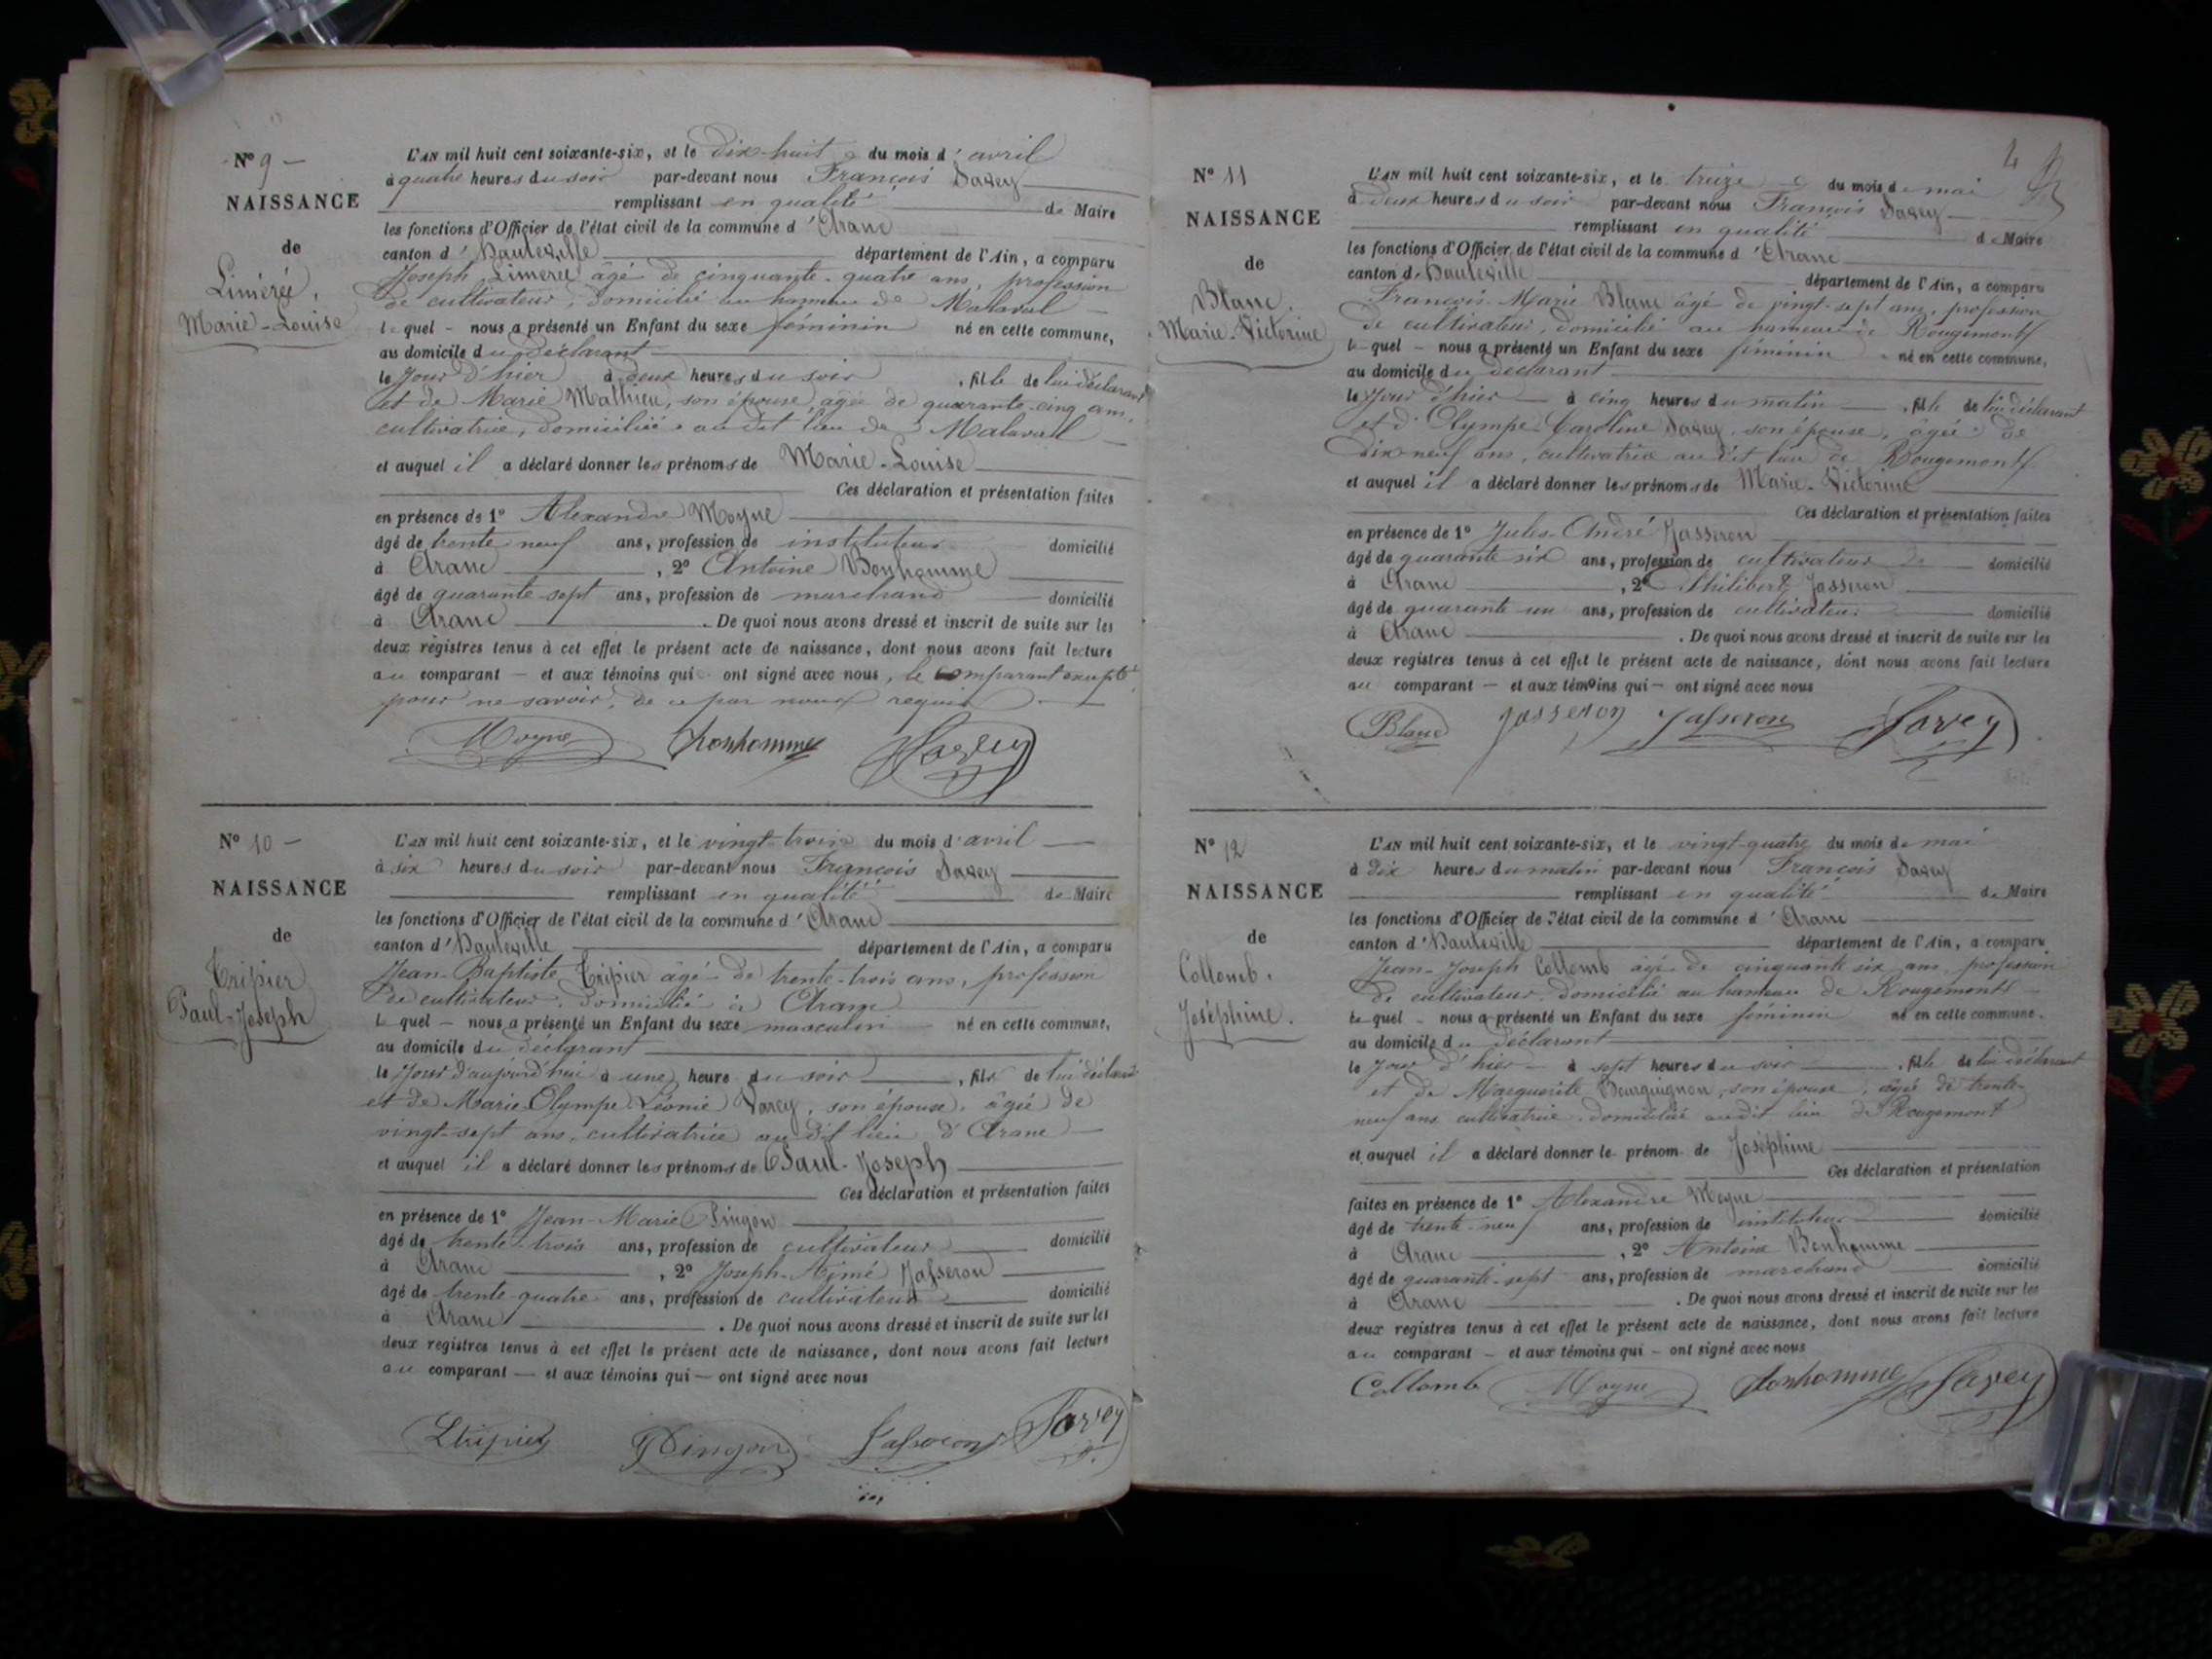 N° 9 —
NAISSANCE
de
Limérée,
Marie-Louise
L'AN mil huit cent soixante-six, et le dix-huit du mois d'avril
à quatre heures du soir par-devant nous François Savey
remplissant en qualité de Maire
les fonctions d'Officier de l'état civil de la commune d'Aranc
canton d'Hauteville département de l'Ain, a comparu
Joseph Limérée âgé de cinquante-quatre ans, profession
de cultivateur, domicilié au hameau de Malaval
lequel — nous a présenté un Enfant du sexe féminin né en cette commune,
au domicile du déclarant
le jour d'hier à deux heures du soir, fille de lui déclarant
et de Marie Mathieu, son épouse, âgée de quarante-cinq ans,
cultivatrice, domiciliée au dit lieu de Malaval
et auquel il a déclaré donner les prénoms de Marie-Louise
Ces déclaration et présentation faites
en présence de 1° Alexandre Moyne
âgé de trente neuf ans, profession de instituteur domicilié
à Aranc, 2° Antoine Bonhomme
âgé de quarante-sept ans, profession de marchand domicilié
à Aranc. De quoi nous avons dressé et inscrit de suite sur les
deux registres tenus à cet effet le présent acte de naissance, dont nous avons fait lecture
au comparant — et aux témoins qui ont signé avec nous, le comparant excepté
pour ne savoir, de ce par nous requis.
Moyne Bonhomme Savey
N° 10 —
NAISSANCE
de
Tripier
Paul-Joseph
L'AN mil huit cent soixante-six, et le vingt-trois du mois d'avril
à six heures du soir par-devant nous François Savey
remplissant en qualité de Maire
les fonctions d'Officier de l'état civil de la commune d'Aranc
canton d'Hauteville département de l'Ain, a comparu
Jean-Baptiste Tripier âgé de trente-trois ans, profession
de cultivateur, domicilié à Aranc
lequel — nous a présenté un Enfant du sexe masculin né en cette commune,
au domicile du déclarant
le jour d'aujourd'hui à une heure du soir, fils de lui déclarant
et de Marie Olympe Léonie Varey, son épouse, âgée de
vingt-sept ans, cultivatrice au dit lieu d'Aranc
et auquel il a déclaré donner les prénoms de Paul-Joseph
Ces déclaration et présentation faites
en présence de 1° Jean-Marie Pingon
âgé de trente-trois ans, profession de cultivateur domicilié
à Aranc, 2° Joseph-Aimé Jasseron
âgé de trente-quatre ans, profession de cultivateur domicilié
à Aranc. De quoi nous avons dressé et inscrit de suite sur les
deux registres tenus à cet effet le présent acte de naissance, dont nous avons fait lecture
au comparant — et aux témoins qui — ont signé avec nous
Tripier Pingon Jasseron Savey
4
N° 11
NAISSANCE
de
Blanc.
Marie-Victorine
L'AN mil huit cent soixante-six, et le treize du mois de mai
à deux heures du soir par-devant nous François Savey
remplissant en qualité de Maire
les fonctions d'Officier de l'état civil de la commune d'Aranc
canton d'Hauteville département de l'Ain, a comparu
François-Marie Blanc âgé de vingt-sept ans, profession
de cultivateur, domicilié au hameau de Rougemont
lequel — nous a présenté un Enfant du sexe féminin né en cette commune,
au domicile du déclarant
le jour d'hier à cinq heures du matin, fille de lui déclarant
et d'Olympe Caroline Savey, son épouse, âgée de
dix-neuf ans, cultivatrice au dit lieu de Rougemont
et auquel il a déclaré donner les prénoms de Marie-Victorine
Ces déclaration et présentation faites
en présence de 1° Jules-André Jasseron
âgé de quarante six ans, profession de cultivateur domicilié
à Aranc, 2° Philibert Jasseron
âgé de quarante un ans, profession de cultivateur domicilié
à Aranc. De quoi nous avons dressé et inscrit de suite sur les
deux registres tenus à cet effet le présent acte de naissance, dont nous avons fait lecture
au comparant — et aux témoins qui — ont signé avec nous
Blanc Jasseron Jasseron Savey
N° 12
NAISSANCE
de
Collomb.
Joséphine.
L'AN mil huit cent soixante-six, et le vingt-quatre du mois de mai
à dix heures du matin par-devant nous François Savey
remplissant en qualité de Maire
les fonctions d'Officier de l'état civil de la commune d'Aranc
canton d'Hauteville département de l'Ain, a comparu
Jean-Joseph Collomb âgé de cinquante six ans, profession
de cultivateur domicilié au hameau de Rougemont
lequel — nous a présenté un Enfant du sexe féminin né en cette commune.
au domicile du déclarant
le jour d'hier à sept heures du soir, fille de lui déclarant
et de Marguerite Bourguignon, son épouse, âgée de trente-
neuf ans cultivatrice, domiciliée audit lieu de Rougemont
et auquel il a déclaré donner le prénom de Joséphine
Ces déclaration et présentation
faites en présence de 1° Alexandre Moyne
âgé de trente-neuf ans, profession de instituteur domicilié
à Aranc, 2° Antoine Bonhomme
âgé de quarante-sept ans, profession de marchand domicilié
à Aranc. De quoi nous avons dressé et inscrit de suite sur les
deux registres tenus à cet effet le présent acte de naissance, dont nous avons fait lecture
au comparant — et aux témoins qui — ont signé avec nous
Collomb Moyne Bonhomme Savey